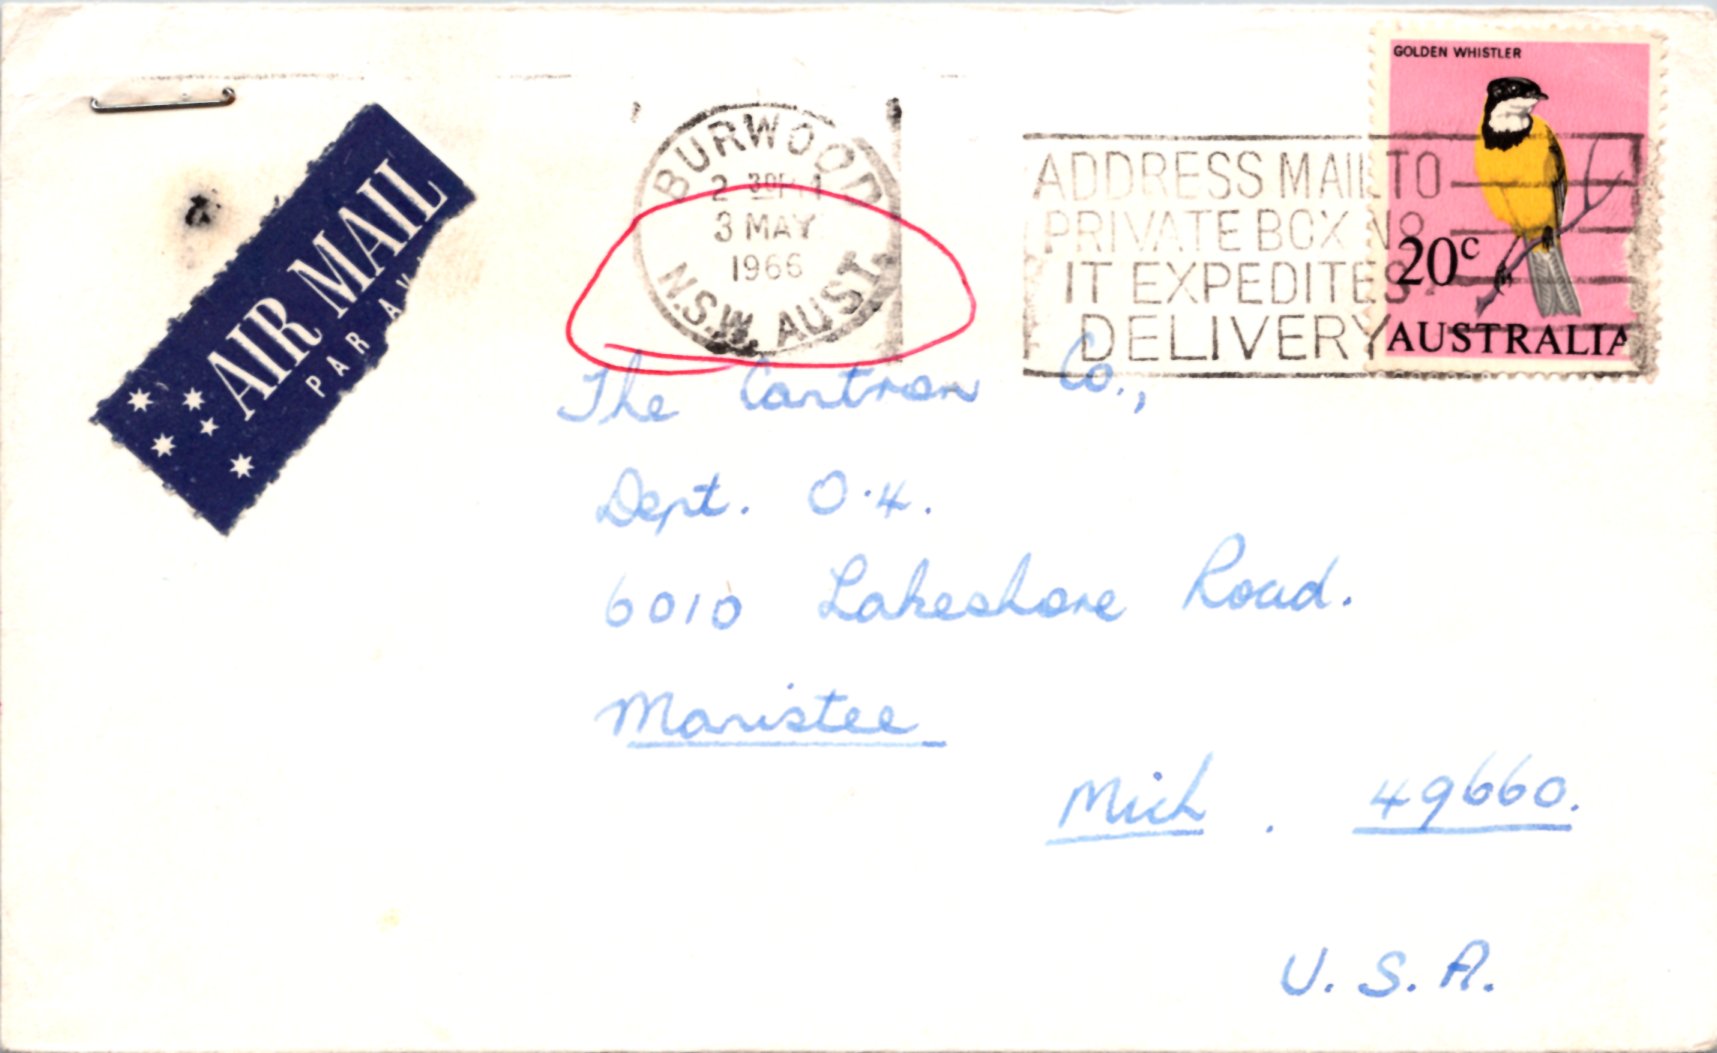 AIR MAIL
PAR AV
BURWOOD
2 30PM
3 MAY
1966
N.S.W. AUST.
ADDRESS MAIL TO
PRIVATE BOX NO
IT EXPEDITES
DELIVERY
GOLDEN WHISTLER
20c
AUSTRALIA
The Cartron Co.,
Dept. O.4.
6010 Lakeshore Road.
Manistee
Mich. 49660.
U.S.A.